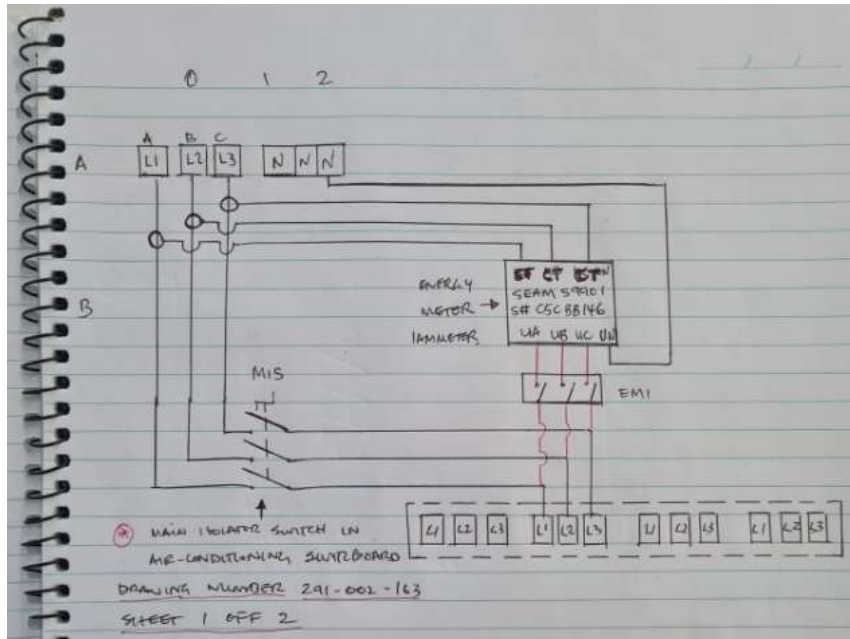 0 1 2
A B C
A L1 L2 L3 N N N
B
ENERGY
METER →
IAMMETER
SEAM 59901
S# C5CBB146
UA UB UC UN
MIS
EMI
L1 L2 L3 L1 L2 L3 L1 L2 L3 L1 L2 L3
* MAIN ISOLATOR SWITCH IN
AIR-CONDITIONING SWITBOARD
DRAWING NUMBER 291-002-163
SHEET 1 OFF 2